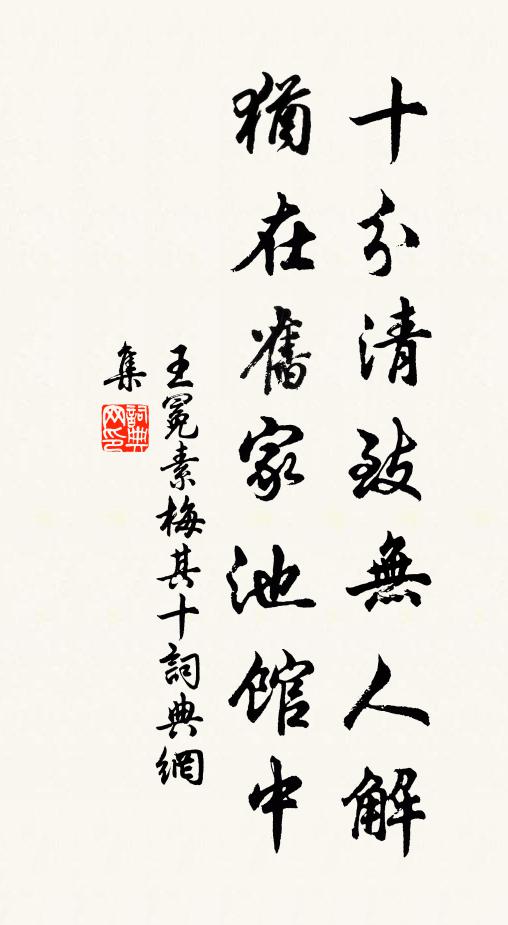 十分清致無人解
猶在舊家池館中
王冕素梅其十詞典網
集
詞典
网印